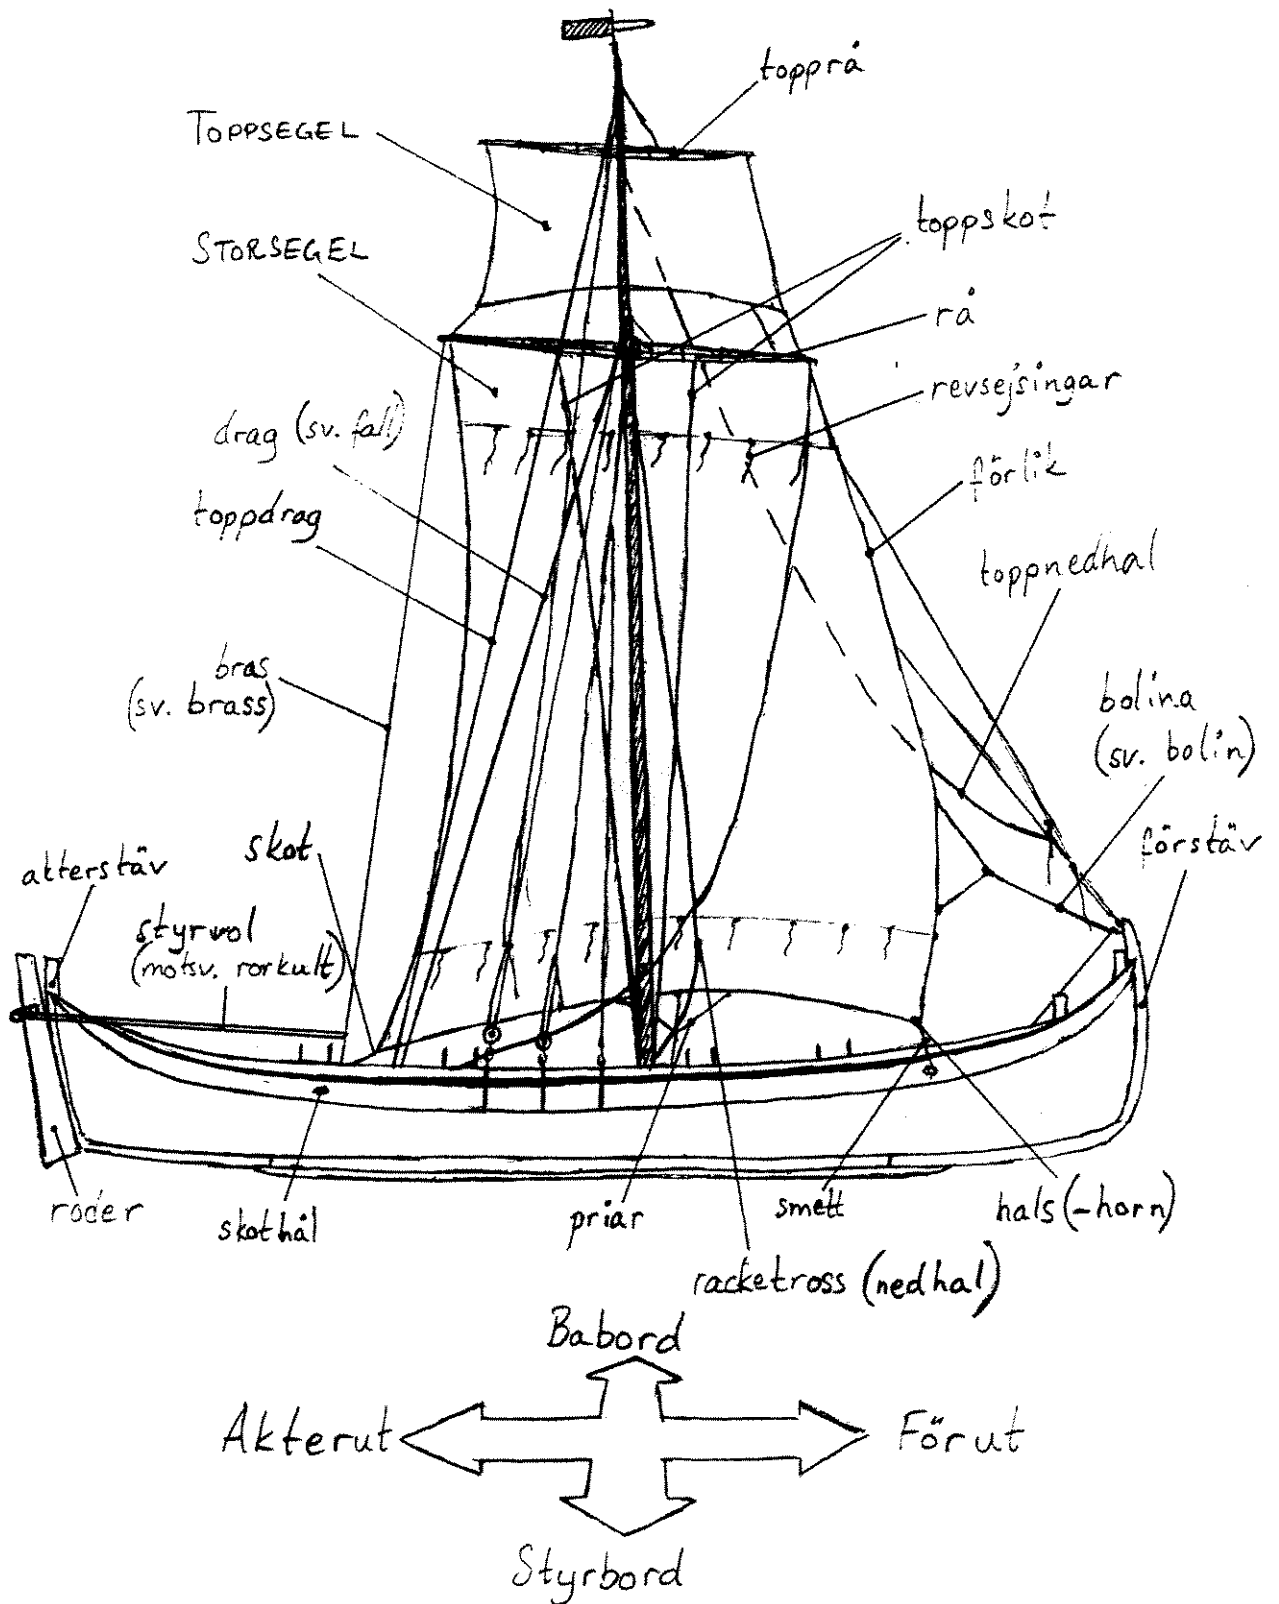 topprå
TOPPSEGEL
toppskot
STORSEGEL
rå
revsejsingar
drag (sv. fall)
förlik
toppdrag
toppnedhal
bras
(sv. brass)
bolina
(sv. bolin)
skot
förstäv
akterstäv
styrvol
(motsv. rorkult)
roder
skothål
priar
smett
hals (-horn)
racketross (nedhal)
Babord
Akterut
Förut
Styrbord